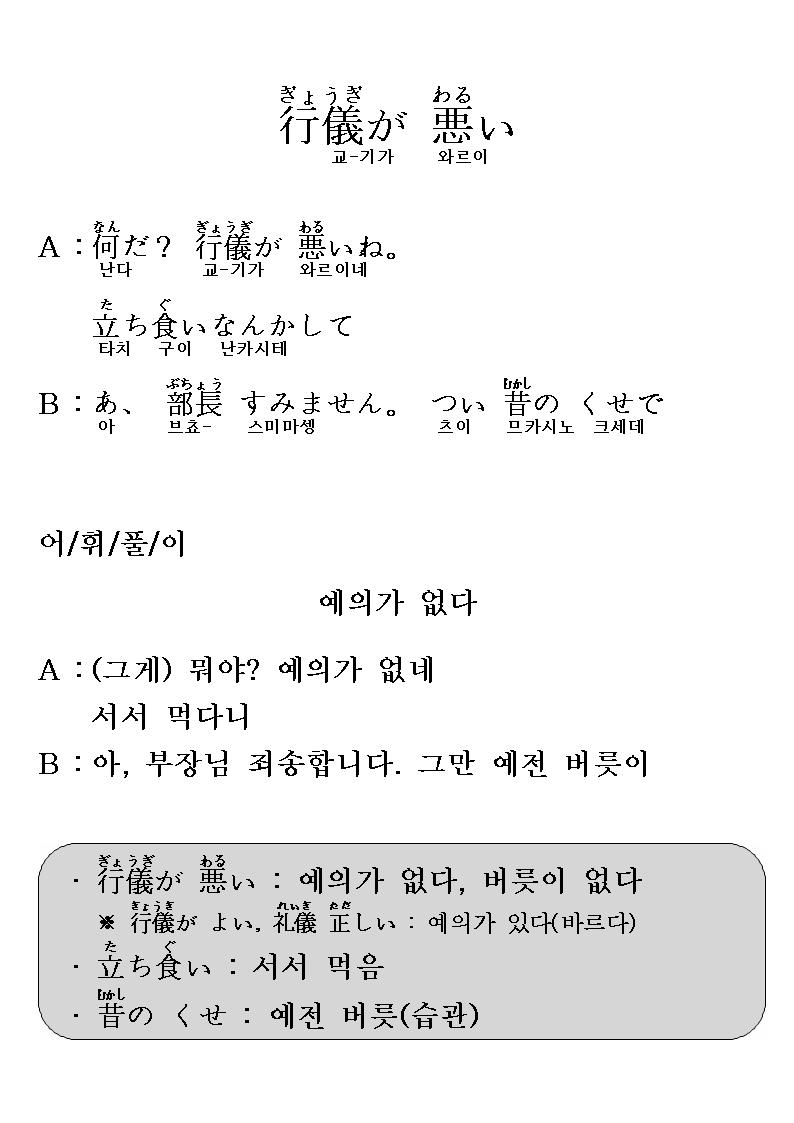 ぎょうぎ わる
行儀が 悪い
교-기가 와르이
なん ぎょうぎ わる
A : 何だ？ 行儀が 悪いね。
난다 교-기가 와르이네
た ぐ
立ち食いなんかして
타치 구이 난카시테
ぶちょう むかし
B : あ、 部長 すみません。 つい 昔の くせで
아 브쵸- 스미마셍 츠이 므카시노 크세데
어/휘/풀/이
예의가 없다
A : (그게) 뭐야? 예의가 없네
서서 먹다니
B : 아, 부장님 죄송합니다. 그만 예전 버릇이
ぎょうぎ わる
· 行儀が 悪い : 예의가 없다, 버릇이 없다
ぎょうぎ れいぎ ただ
※ 行儀が よい, 礼儀 正しい : 예의가 있다(바르다)
た ぐ
· 立ち食い : 서서 먹음
むかし
· 昔の くせ : 예전 버릇(습관)